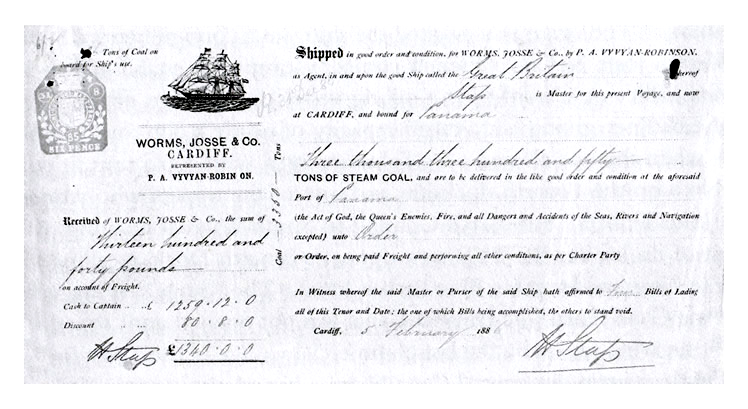 Tons of Coal on
board for Ship's use.
SIX PENCE
WORMS, JOSSE & CO.
CARDIFF.
REPRESENTED BY
P. A. VYVYAN-ROBIN ON.
Received of WORMS, JOSSE & Co., the sum of
Thirteen hundred and
forty pounds
on account of Freight.
Cash to Captain .. £ 1259.12.0
Discount .. 80.8.0
H Stap
£1340.0.0
Coal — 3350 — Tons
Shipped in good order and condition, for WORMS, JOSSE & Co., by P. A. VYVYAN-ROBINSON,
as Agent, in and upon the good Ship called the Great Britain whereof
Stap is Master for this present Voyage, and now
at CARDIFF, and bound for Panama
Three thousand three hundred and fifty
TONS OF STEAM COAL, and are to be delivered in the like good order and condition at the aforesaid
Port of Panama
(the Act of God, the Queen's Enemies, Fire, and all Dangers and Accidents of the Seas, Rivers and Navigation
excepted) unto Order
or Order, on being paid Freight and performing all other conditions, as per Charter Party
In Witness whereof the said Master or Purser of the said Ship hath affirmed to Four Bills of Lading
all of this Tenor and Date; the one of which Bills being accomplished, the others to stand void.
Cardiff, 5 February 1886
H Stap